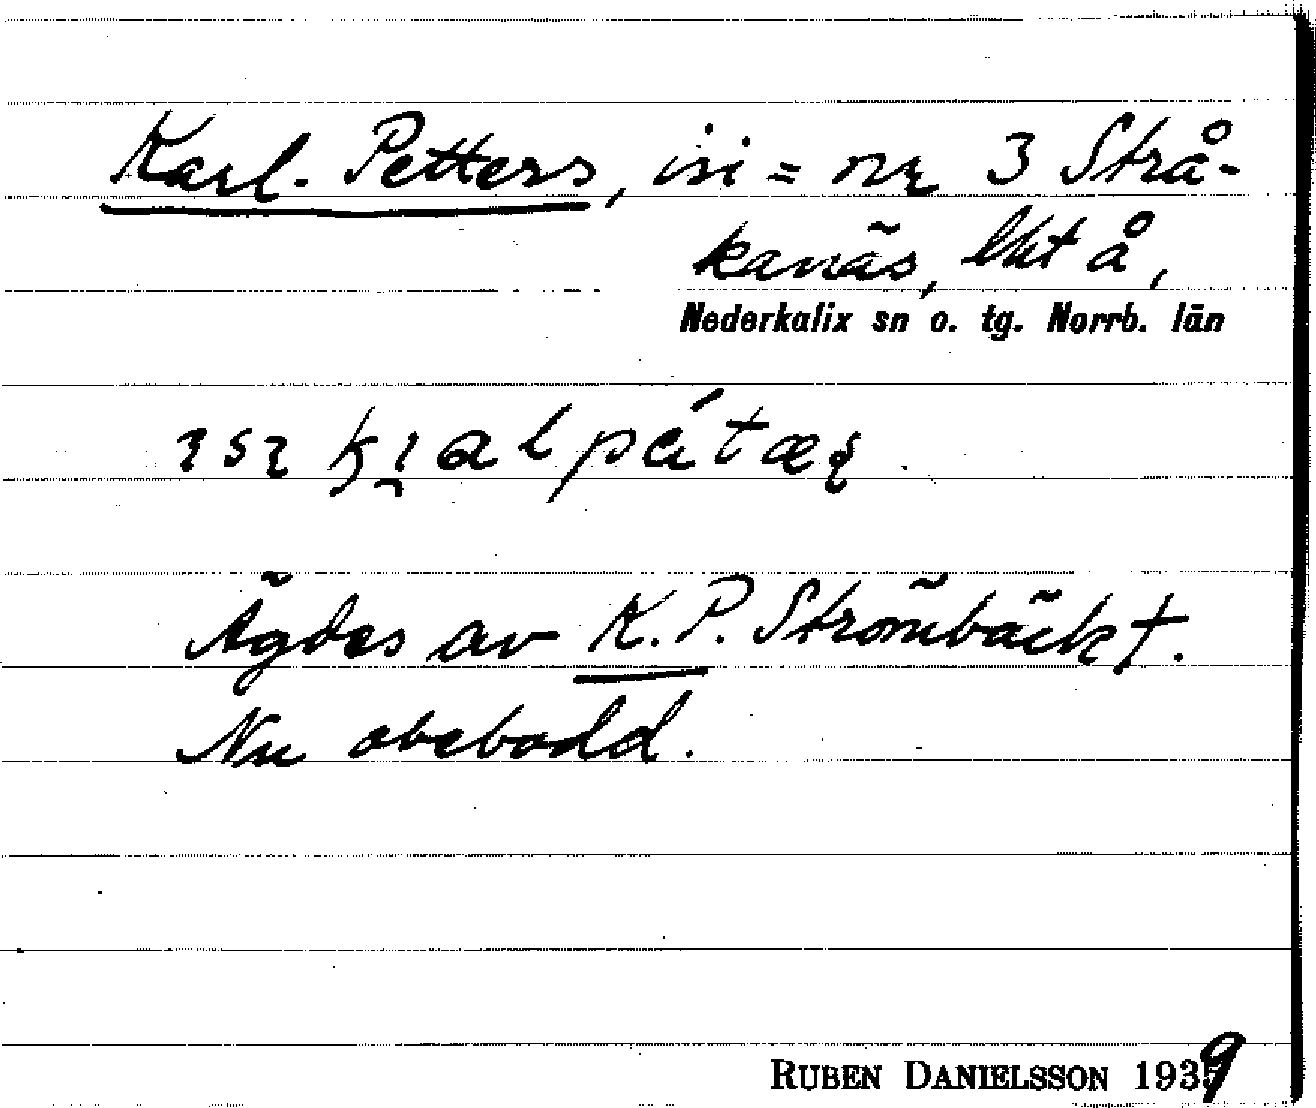 Karl-Petters, isi = nr 3 Strå-
kanäs, lkt å,
Nederkalix sn o. tg. Norrb. län
Ägdes av K. P. Strömbäck†.
Nu obebodd.
RUBEN DANIELSSON 1939